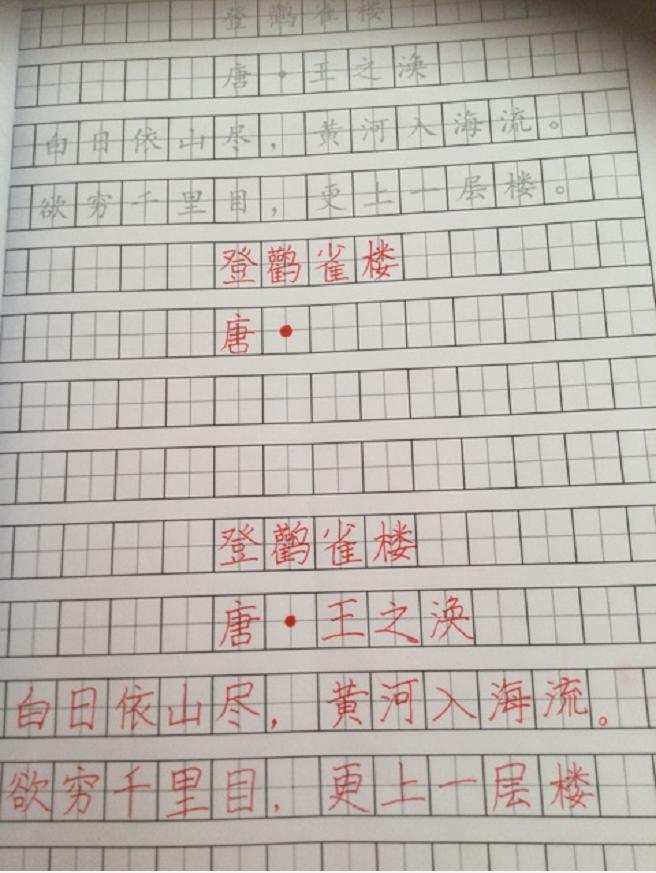 登鹳雀楼
唐·王之涣
白日依山尽，黄河入海流。
欲穷千里目，更上一层楼。
登鹳雀楼
唐·
登鹳雀楼
唐·王之涣
白日依山尽，黄河入海流。
欲穷千里目，更上一层楼